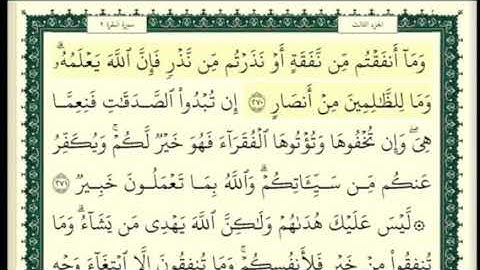 الجزء الثالث
سورة البقرة ٢
وَمَآ أَنفَقْتُم مِّن نَّفَقَةٍ أَوْ نَذَرْتُم مِّن نَّذْرٍ فَإِنَّ ٱللَّهَ يَعْلَمُهُۥ ۗ
وَمَا لِلظَّٰلِمِينَ مِنْ أَنصَارٍ ٢٧٠ إِن تُبْدُوا۟ ٱلصَّدَقَٰتِ فَنِعِمَّا
هِىَ ۖ وَإِن تُخْفُوهَا وَتُؤْتُوهَا ٱلْفُقَرَآءَ فَهُوَ خَيْرٌ لَّكُمْ ۚ وَيُكَفِّرُ
عَنكُم مِّن سَيِّـَٔاتِكُمْ ۗ وَٱللَّهُ بِمَا تَعْمَلُونَ خَبِيرٌ ٢٧١
۞ لَّيْسَ عَلَيْكَ هُدَىٰهُمْ وَلَٰكِنَّ ٱللَّهَ يَهْدِى مَن يَشَآءُ ۗ وَمَا
تُنفِقُوا۟ مِنْ خَيْرٍ فَلِأَنفُسِكُمْ ۚ وَمَا تُنفِقُونَ إِلَّا ٱبْتِغَآءَ وَجْهِ